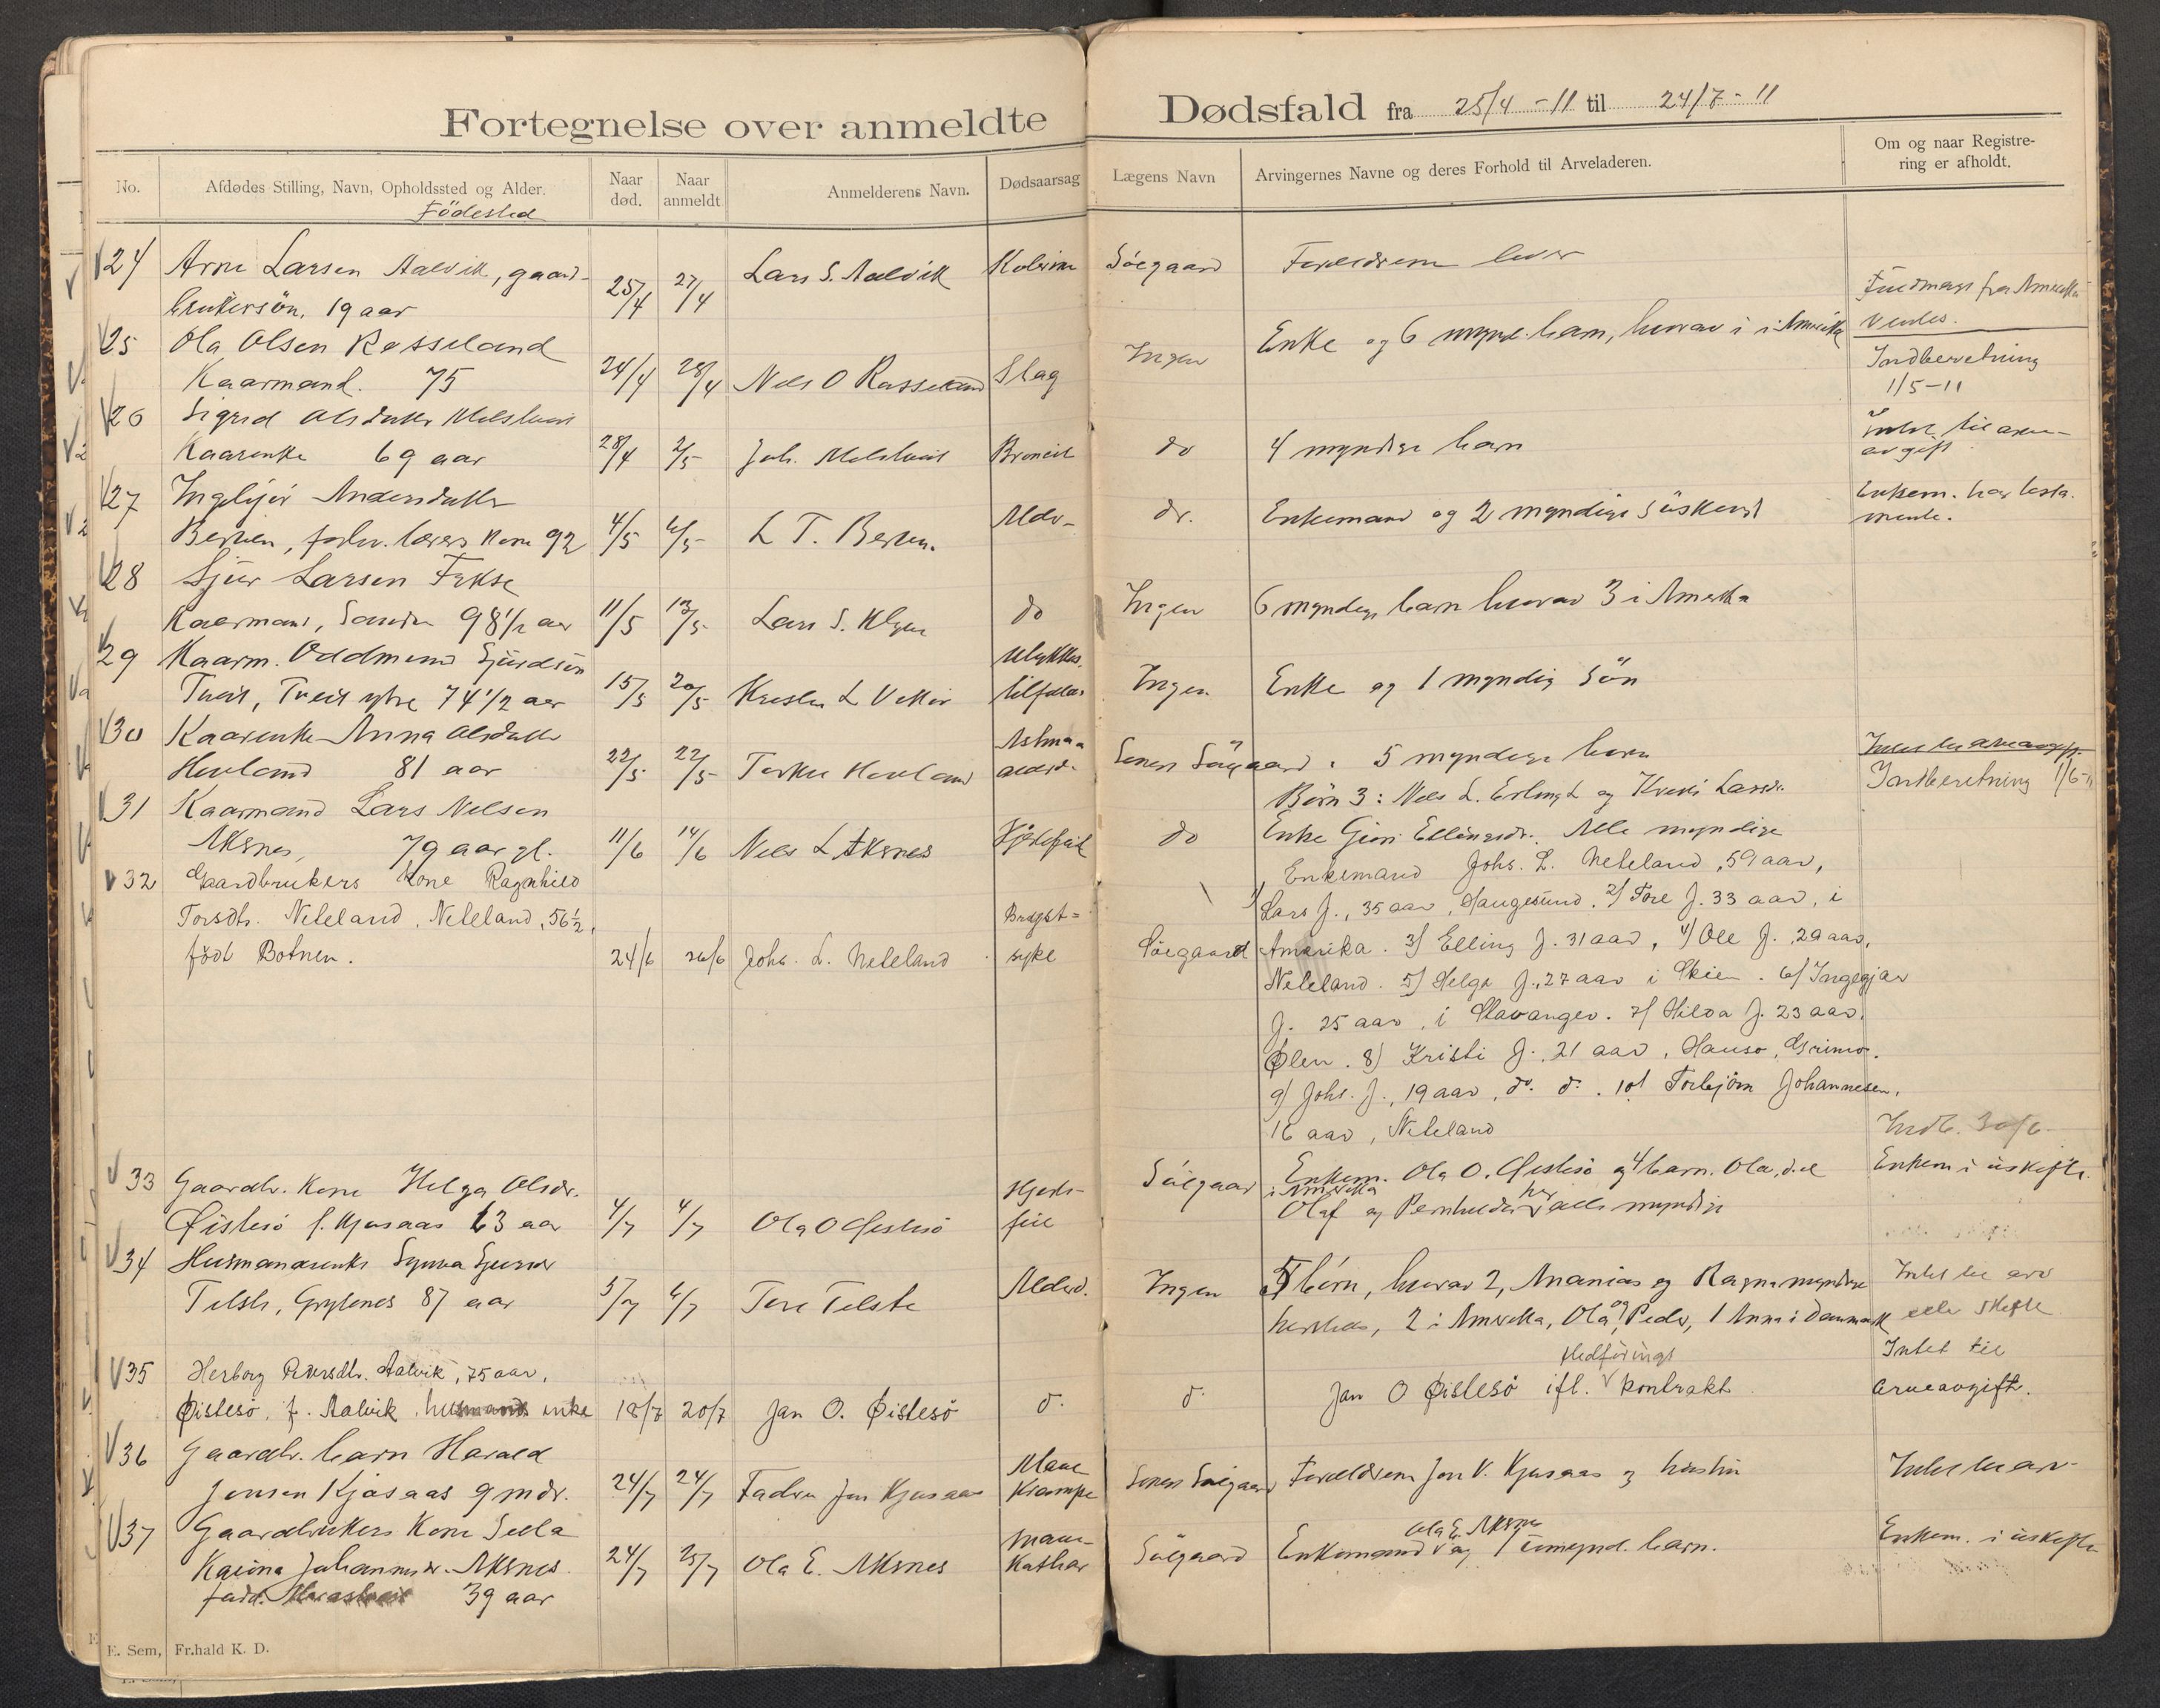 Fortegnelse over anmeldte
Dødsfald fra 25/4 - 11 til 24/7 - 11
No.
Afdødes Stilling, Navn, Opholdssted og Alder.
Födested
Naar død.
Naar anmeldt.
Anmelderens Navn.
Dødsaarsag
Lægens Navn
Arvingernes Navne og deres Forhold til Arveladeren.
Om og naar Registrering er afholdt.
24 Arne Larsen Aalvik, gaard- Lars S. Aalvik Söegaard Foreldrene lever
brukersön, 19 aar 25/4 27/4
25 Ola Olsen Rosseland Enke og 6 mynd. barn, hvorav i Amerika
Fuldmagt fra Amerika
ventes.
Kaarmand. 75 24/4 28/4 Nels O Rosseland Slag Ingen
Indberetning
1/5-11
26 Sigrid Olsdatter
Kaarenke 69 aar 28/4 2/5 Joh. do 4 myndige barn
til arve-
avgift
27 Ingebjör Andersdatter
Berven, forhv. lærers kone 92 4/5 6/5 L T. Berven. Alder- do. Enkemand og 2 myndige söskend
Enkem. har testa-
mente.
28 Sjur Larsen Fykse
Kaarmand, 98 1/2 aar 11/5 13/5 Lars S. do Ingen 6 myndige barn hvorav 3 i Amerika
29 Kaarm. Oddmund Sjurdsön Ulykkes-
Tveit, Tveit ytre 74 1/2 aar 15/5 20/5 L Vikör tilfælde Ingen Enke og 1 myndig Sön
30 Kaarenke Anna Olsdatter Astma
Hovland 81 aar 22/5 22/5 Torkel Hovland alderd. Söegaard. 5 myndige barn
Indberetning 1/6-11
31 Kaarmand Lars Nelsen Börn 3: Nels L. Erling L og Larsdr.
Aksnes, 79 aar gl. 11/6 14/6 Nels L Aksnes Hjertefeil do Enke Ellingsdr. Alle myndige
32 Gaardbrukers kone Ragnhild Enkemand Johs. L. Neteland, 59 aar,
Torsdtr. Neteland, Neteland, 56 1/2, Bryst= 1/ Lars J., 35 aar, Haugesund. 2/ Tore J. 33 aar, i
född Botnen. 24/6 26/6 Johs. L. Neteland syke Söegaard Amerika. 3/ Elling J. 31 aar, 4/ Ole J. 29 aar,
Neteland. 5/ Helge J., 27 aar i Skien. 6/ Ingegjær
J. 25 aar, i Stavanger. 7/ Hilda J. 23 aar,
Ølen. 8) Kristi J. 21 aar, Hauso, Grimo.
9/ Johs. J., 19 aar, do. do. 10/ Torbjörn Johannesen,
16 aar, Neteland
Indb. 30/6
33 Gaardbr. kone Helga Olsdr. Hjerte- Söegaard Enkem. Ola O. Øistesö og 4 barn. Ola, d.e.
i Amerika
Enkem i uskifte.
Øistesö f. Kjosaas 63 aar 4/7 4/7 Ola O Øistesö feil Olaf og her alle myndige
34 Husmandsenke Synva Sjursdr Alderd. Ingen 5 börn, hvorav 2, Ananias og Ragna myndige
Intet til arv
Telste, Grytenes 87 aar 5/7 6/7 Tore Telste 2 i Amerika, Ola og Peder, 1 Anna i Danmark
eller skifte
35 Herborg Pedersdtr. Aalvik, 75 aar, Intet til
Øistesö, f. Aalvik, husmands enke 18/7 20/7 Jan O. Øistesö do. do. Jan O Øistesö ifl. födrings kontrakt
arveavgift.
36 Gaardbr. barn Harald Mave
Jonsen Kjosaas 9 mdr. 24/7 24/7 Fader Jon Kjosaas Krampe Söegaard Foreldrene Jon V. Kjosaas og hustru
Intet til arv
37 Gaardbrukers Kone Sella Mave- Ola E. Aksnes
Karina Johannesdr. Aksnes. 24/7 25/7 Ola E. Aksnes Kathar Söegaard Enkemand og 1 umynd. barn.
Enkem. i uskifte
född. 39 aar
E. Sem, Fr.hald K. D.